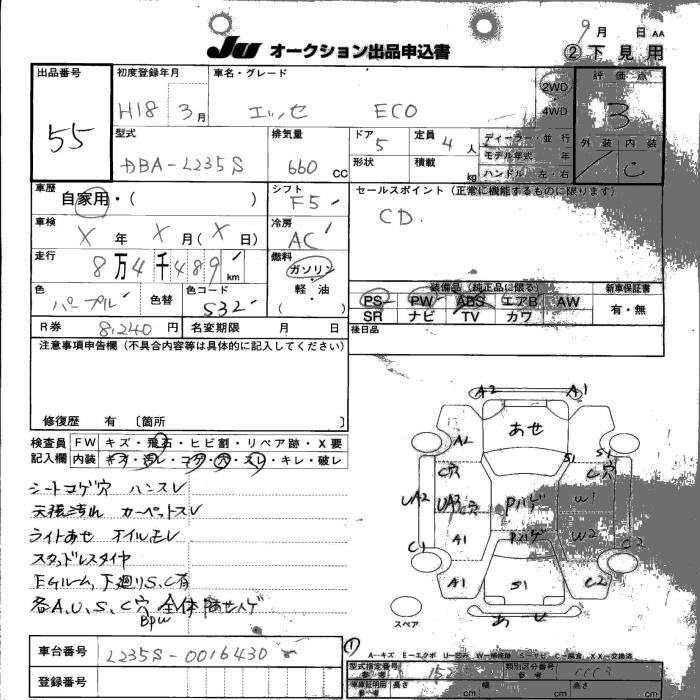 9月 日 AA
JU オークション出品申込書 ②下見用
出品番号 初度登録年月 車名・グレード 評価点
55 H18 3月 エッセ ECO 2WD 4WD 3
型式 排気量 ドア 定員 ディーラー・並行 外装 内装
DBA-L235S 660 CC 5 4人 モデル年式 年 C
形状 積載 kg ハンドル 左・右
車歴 シフト セールスポイント(正常に機能するものに限ります)
自家用・( ) F5
CD.
車検 冷房
X年 X月(X日) AC
走行 燃料
8万4千489km ガソリン・軽油 ( )
色 色替 色コード 装備品(純正品に限る) 新車保証書
パープル S32 PS PW ABS エアB AW 有・無
SR ナビ TV カワ
R券 8,240円 名変期限 月 日 後日品
注意事項申告欄(不具合内容等は具体的に記入してください)
修復歴 有 〔箇所 〕
検査員 FW キズ・飛石・ヒビ割・リペア跡・X要
記入欄 内装 キズ・汚レ・コゲ・穴・スレ・キレ・破レ
シートコゲ穴 ハンスレ
天張汚れ カーペットスレ
ライトあせ オイルモレ
スタッドレスタイヤ
Eゲルーム,下廻りS,C有
各A,U,S,C穴 全体あせハゲ
Bpw
A2 A1
あせ
A2 S1 S1
C穴 C穴
UA2 UA3 穴 Pハゲ W1
C1 A1 Pハゲ W2 C2
A1 S1 C2
あせ
スペア
車台番号 L235S-0016430
登録番号
A-キズ E-エクボ U-凹み W-補修跡 S-サビ C-腐食 XX-交換済
型式指定番号 類別区分番号
参考 参考
車庫証明用 長さ cm 幅 cm 高さ cm